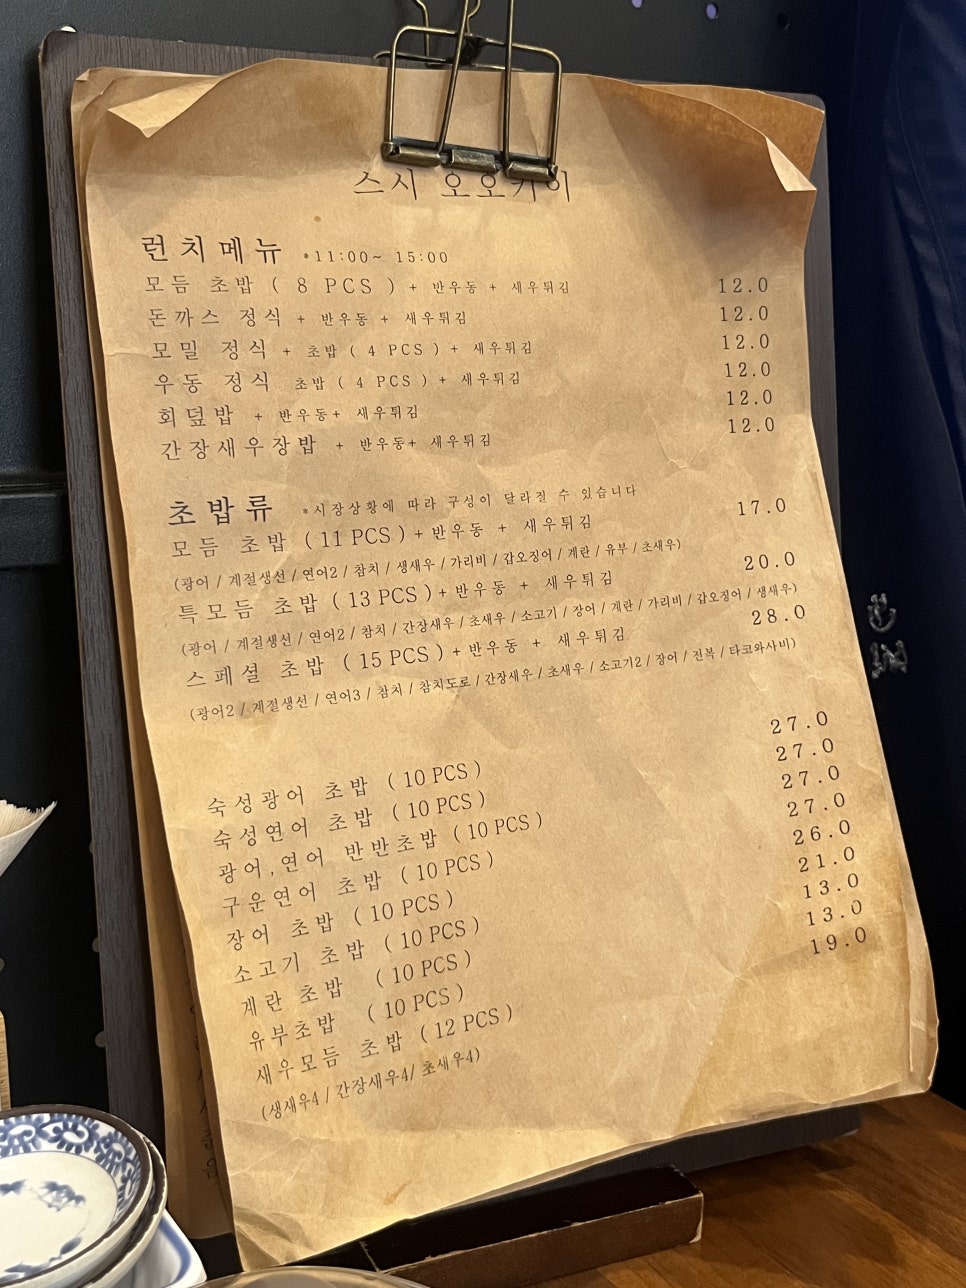 스시 오오카이
런치메뉴 *11:00~ 15:00
모듬 초밥 ( 8 PCS ) + 반우동 + 새우튀김 12.0
돈까스 정식 + 반우동 + 새우튀김 12.0
모밀 정식 + 초밥 ( 4 PCS ) + 새우튀김 12.0
우동 정식 초밥 ( 4 PCS ) + 새우튀김 12.0
회덮밥 + 반우동+ 새우튀김 12.0
간장새우장밥 + 반우동+ 새우튀김 12.0
초밥류 *시장상황에 따라 구성이 달라질 수 있습니다
모듬 초밥 ( 11 PCS ) + 반우동 + 새우튀김 17.0
(광어 / 계절생선 / 연어2 / 참치 / 생새우 / 가리비 / 갑오징어 / 계란 / 유부 / 초새우)
특모듬 초밥 ( 13 PCS ) + 반우동 + 새우튀김 20.0
(광어 / 계절생선 / 연어2 / 참치 / 간장새우 / 초새우 / 소고기 / 장어 / 계란 / 가리비 / 갑오징어 / 생새우)
스페셜 초밥 ( 15 PCS ) + 반우동 + 새우튀김 28.0
(광어2 / 계절생선 / 연어3 / 참치 / 참치도로 / 간장새우 / 초새우 / 소고기2 / 장어 / 전복 / 타코와사비)
숙성광어 초밥 ( 10 PCS ) 27.0
숙성연어 초밥 ( 10 PCS ) 27.0
광어,연어 반반초밥 ( 10 PCS ) 27.0
구운연어 초밥 ( 10 PCS ) 27.0
장어 초밥 ( 10 PCS ) 26.0
소고기 초밥 ( 10 PCS ) 21.0
계란 초밥 ( 10 PCS ) 13.0
유부초밥 ( 10 PCS ) 13.0
새우모듬 초밥 ( 12 PCS ) 19.0
(생새우4 / 간장새우4/ 초새우4)